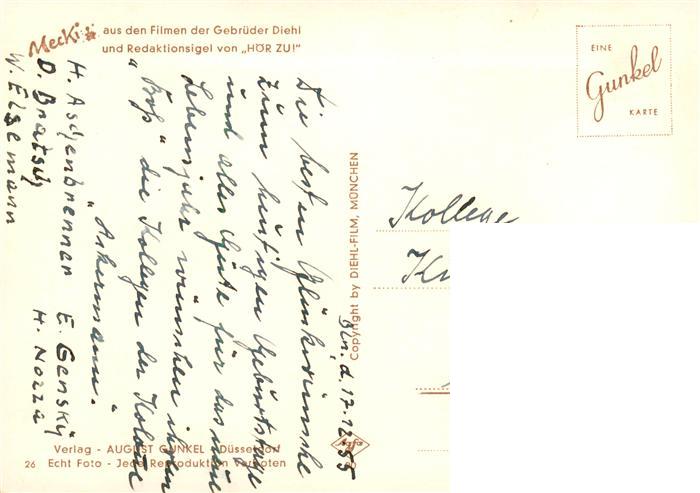 Mecki
aus den Filmen der Gebrüder Diehl
und Redaktionsigel von „HÖR ZU!"
EINE
Gunkel
KARTE
Bln. d. 17.12.55
Die besten Glückwünsche
zum heutigen Geburtstage
und alles Gute für das neue
Lebensjahr wünschen ihrem
„Boß" die Kollegen der Kolonne
„Ankermann".
H. Aschenbrenner E. Gensky
D. Bratsch H. Nozza
W. Elsemann
Copyright by DIEHL-FILM, MÜNCHEN
Kollege
Agfa
Verlag - AUGUST GUNKEL - Düsseldorf
26 Echt Foto - Jede Reproduktion verboten